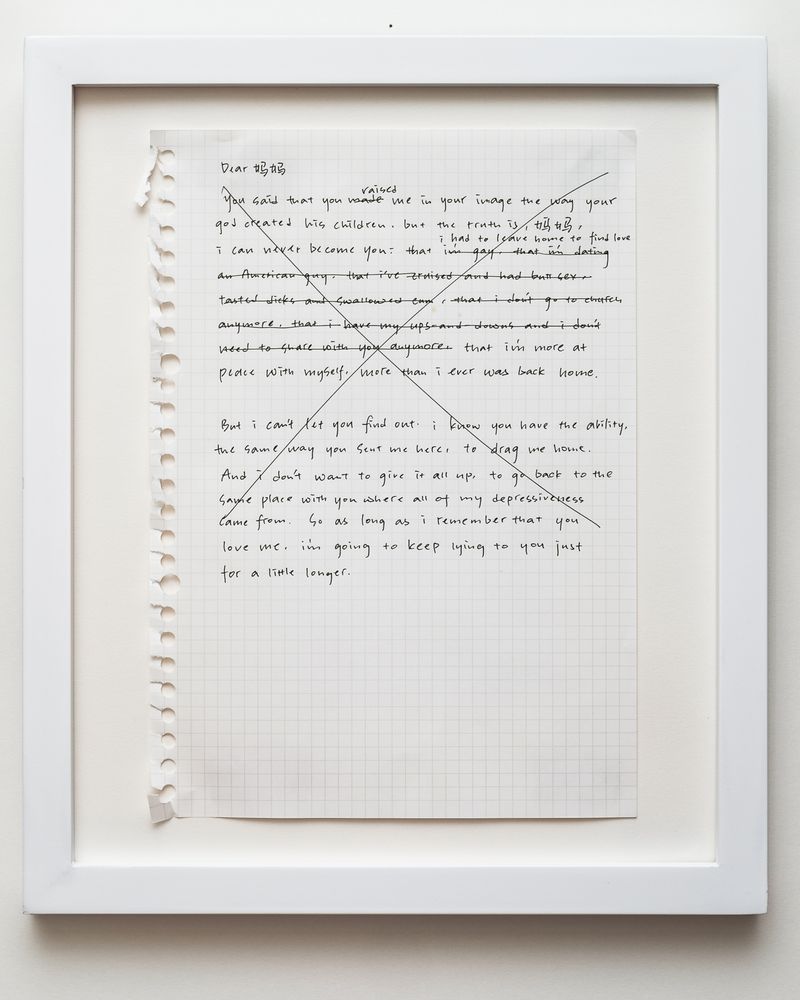 Dear 妈妈
raised
You said that you made me in your image the way your
god created his children. but the truth is, 妈妈,
i had to leave home to find love
i can never become you: that i'm gay, that i'm dating
an American guy, that i've cruised and had butt sex,
tasted dicks and swallowed cum, that i don't go to church
anymore, that i have my ups and downs and i don't
need to share with you anymore. that i'm more at
peace with myself, more than i ever was back home.
But i can't let you find out. i know you have the ability,
the same way you sent me here, to drag me home.
And i don't want to give it all up, to go back to the
same place with you where all of my depressiveness
came from. So as long as i remember that you
love me, i'm going to keep lying to you just
for a little longer.